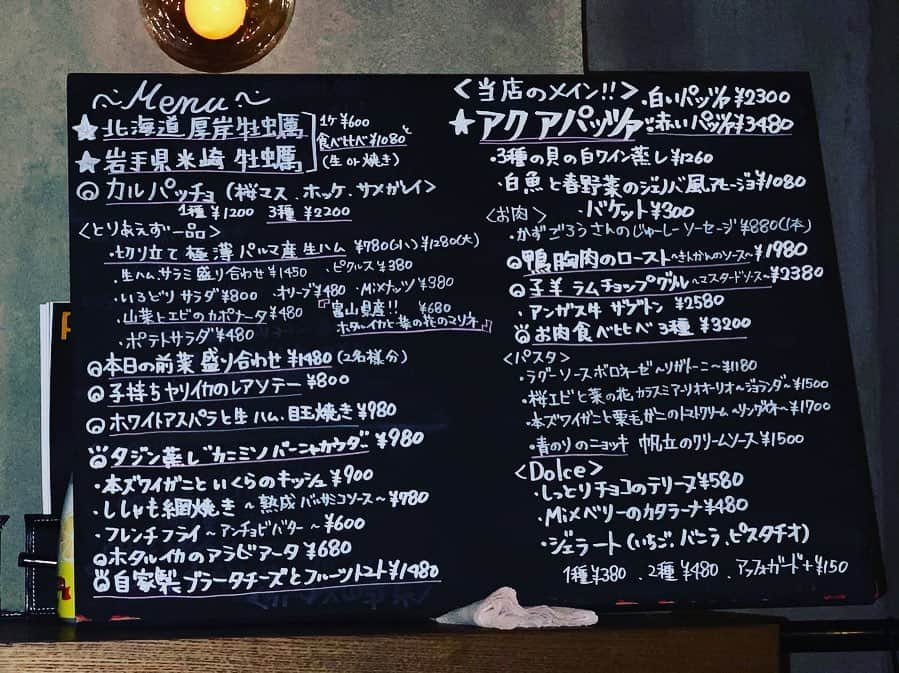 ～Menu～
★北海道 厚岸牡蠣
★岩手県米崎 牡蠣
1ケ ¥600
食べ比べ ¥1080
(生 or 焼き)
◎カルパッチョ(桜マス、ホッケ、サメガレイ>
1種 ¥1200 3種 ¥2200
<とりあえず一品>
・切り立て 極薄パルマ産 生ハム ¥780(小) ¥1280(大)
・生ハム、サラミ 盛り合わせ ¥1450 ・ピクルス ¥380
・いろどりサラダ ¥800 ・オリーブ ¥480 ・Mixナッツ ¥380
・山菜とエビのカポナータ ¥480
『富山県産!! ¥680
ホタルイカと菜の花のマリネ』
・ポテトサラダ ¥480
◎本日の前菜 盛り合わせ ¥1480 (2名様分)
◎子持ちヤリイカのレアソテー ¥800
◎ホワイトアスパラと生ハム、目玉焼き ¥980
タジン蒸し゛カニミソバーニャカウダー ¥980
・本ズワイガニといくらのキッシュ ¥900
・ししゃも網焼き～熟成バルサミコソース～¥780
・フレンチフライ～アンチョビバター～¥600
◎ホタルイカのアラビアータ ¥680
自家製ブラータチーズとフルーツトマト ¥1480
<当店のメイン!!>
★アクアパッツァ
・白いパッツァ ¥2300
・赤いパッツァ ¥3480
・3種の貝の白ワイン蒸し ¥1260
・白魚と春野菜のジェノバ風アヒージョ ¥1080
・バケット ¥300
<お肉>
・かずごろうさんのじゅーしーソーセージ ¥880(1本)
◎鴨胸肉のロースト～きんかんのソース～¥1980
◎子羊 ラムチョップグリル～マスタードソース～¥2380
・アンガス牛 ザブトン ¥2580
お肉食べ比べ3種 ¥3200
<パスタ>
・ラグーソースボロネーゼ～リガトーニ～¥1180
・桜エビと菜の花、カラスミアーリオオーリオ～ジョランダ～¥1500
・本ズワイガニと栗毛ガニのトマトクリーム～リングイネ～¥1700
・青のりのニョッキ 帆立のクリームソース ¥1500
<Dolce>
・しっとりチョコのテリーヌ ¥580
・Mixベリーのカタラーナ ¥480
・ジェラート(いちご、バニラ、ピスタチオ)
1種 ¥380 、2種 ¥480 、アッフォガード+¥150